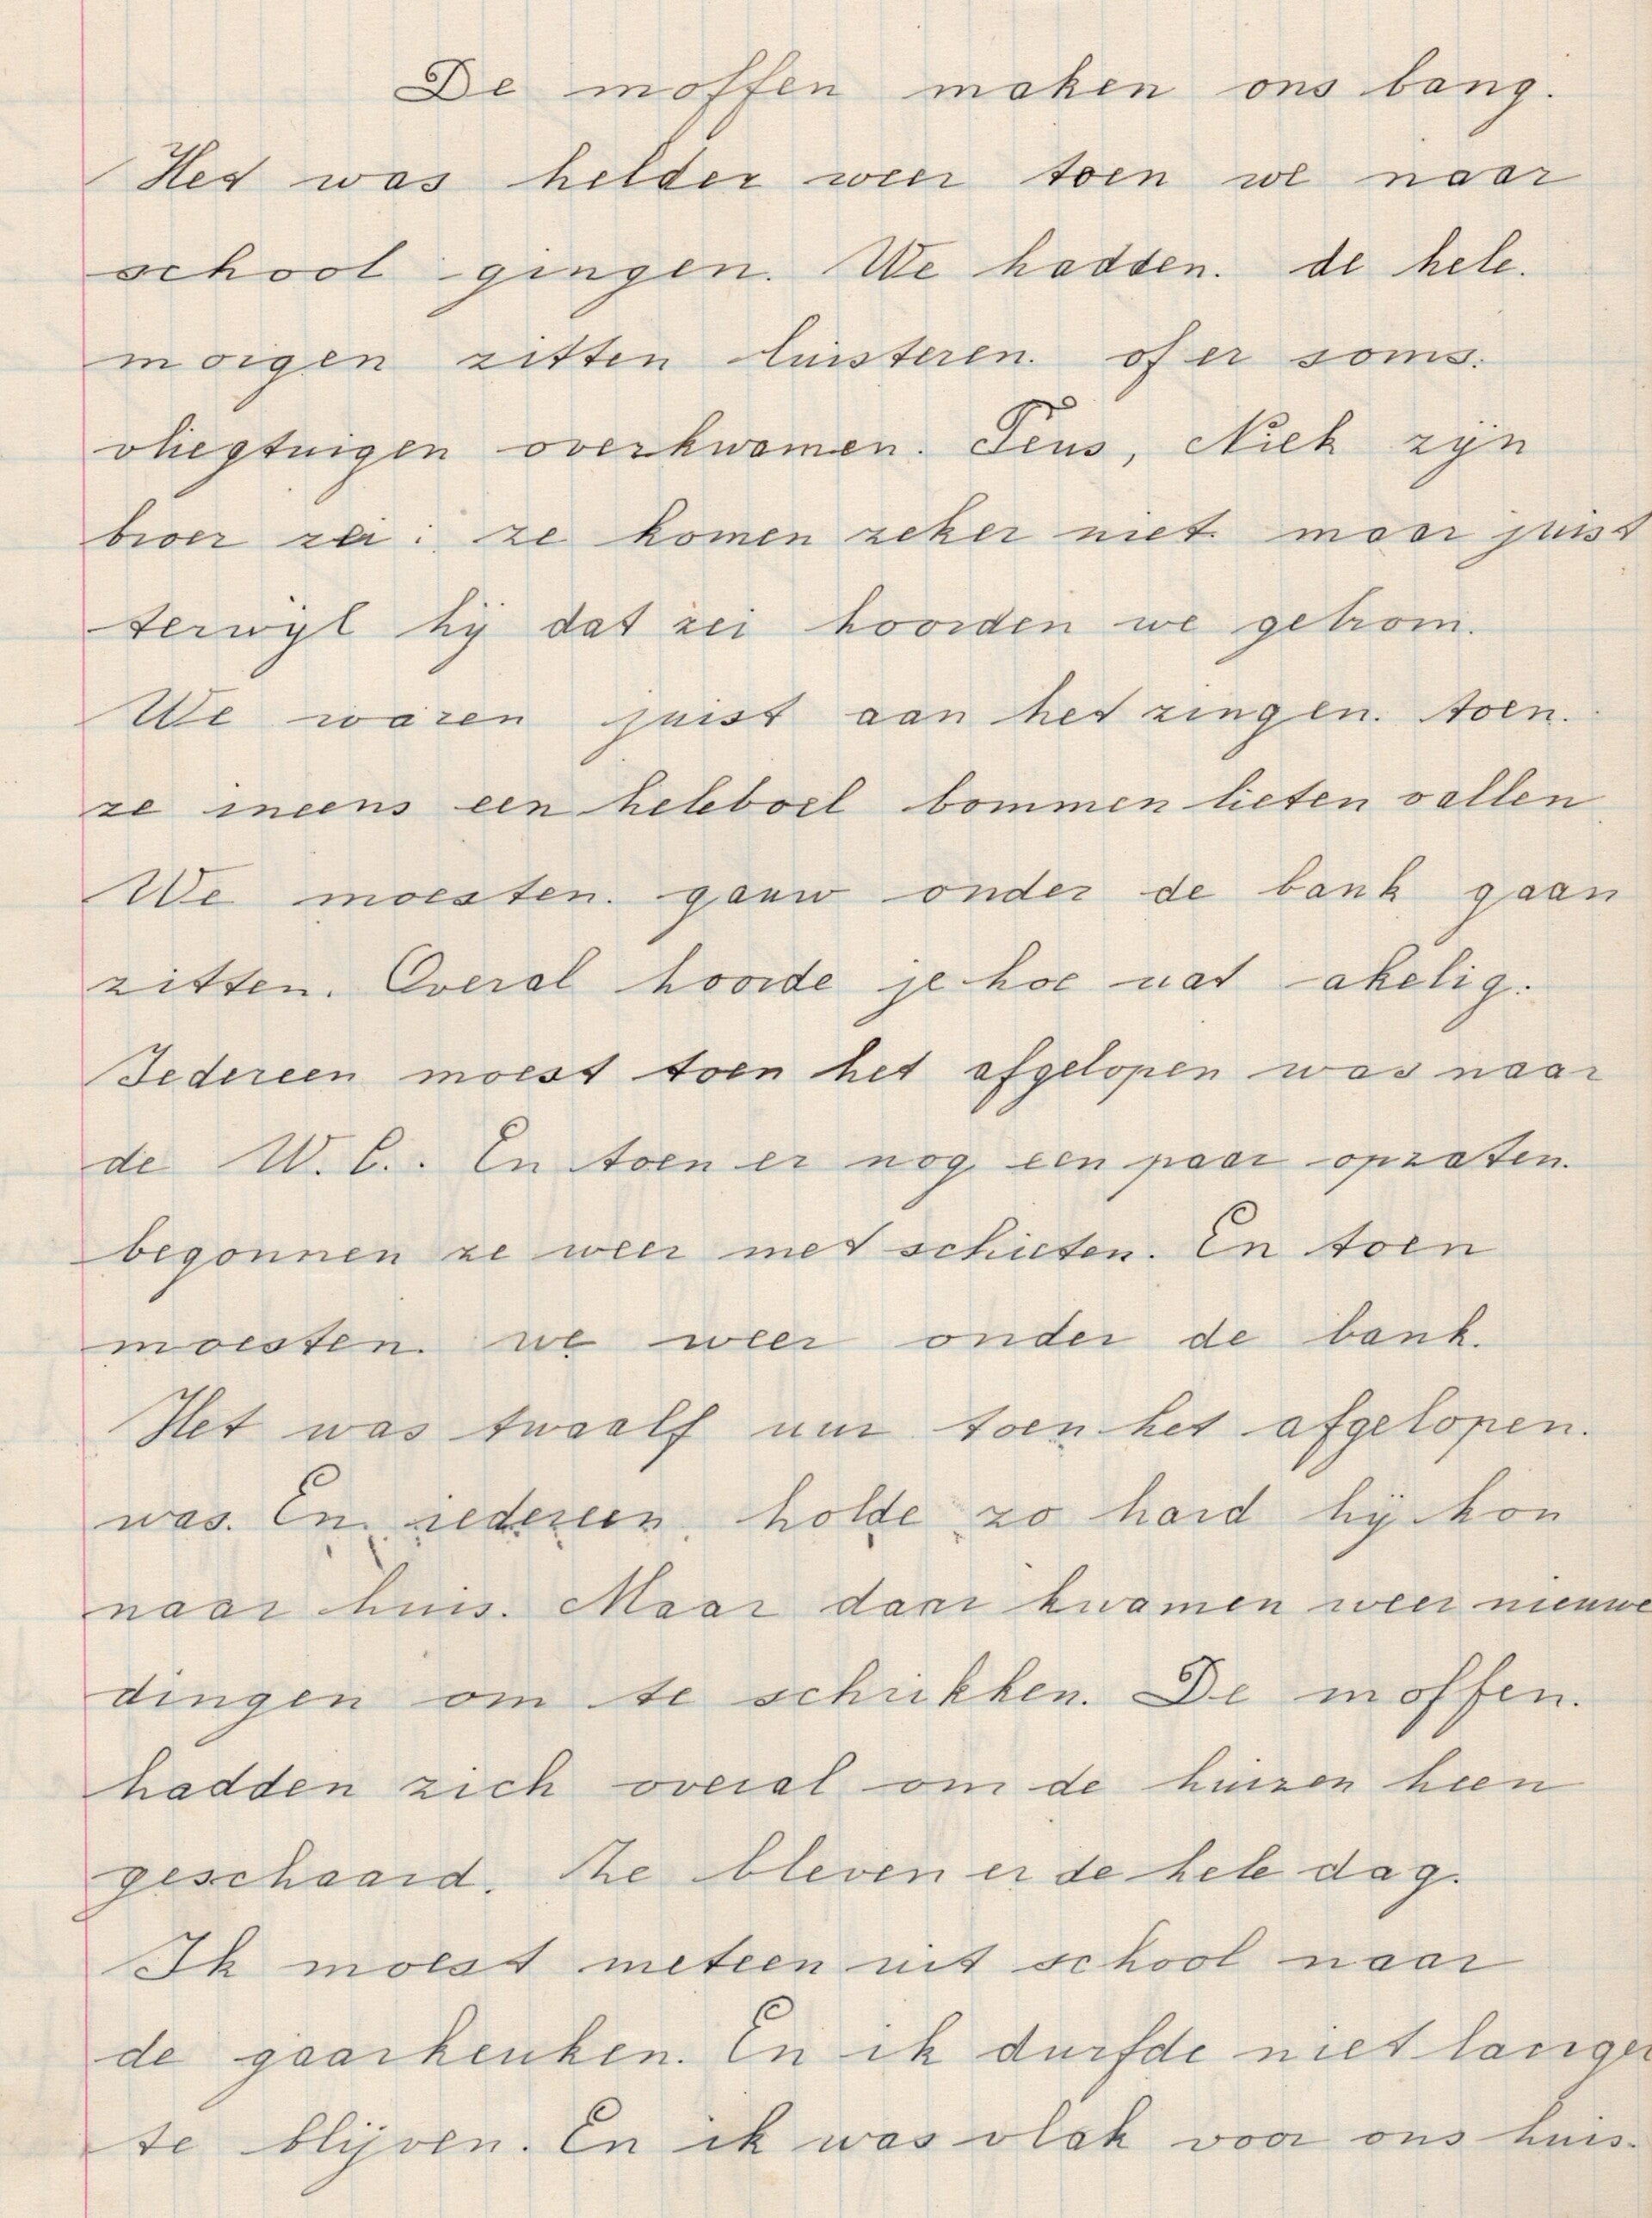 De moffen maken ons bang.
Het was helder weer toen we naar
school gingen. We hadden. de hele.
morgen zitten luisteren. of er soms.
vliegtuigen overkwamen. Teus, Niek zijn
broer zei: ze komen zeker niet. maar juist
terwijl hij dat zei hoorden we gebrom.
We waren juist aan het zingen. toen.
ze ineens een heleboel bommen lieten vallen
We moesten. gauw onder de bank gaan
zitten. Overal hoorde je hoe nat akelig.
Iedereen moest toen het afgelopen was naar
de W. C.. En toen er nog een paar opzaten.
begonnen ze weer met schieten. En toen
moesten. we weer onder de bank.
Het was twaalf uur toen het afgelopen.
was. En iedereen holde zo hard hij kon
naar huis. Maar daar kwamen weer nieuwe
dingen om te schrikken. De moffen.
hadden zich overal om de huizen heen
geschaard. Ze bleven er de hele dag.
Ik moest meteen uit school naar
de gaarkeuken. En ik durfde niet langer
te blijven. En ik was vlak voor ons huis.